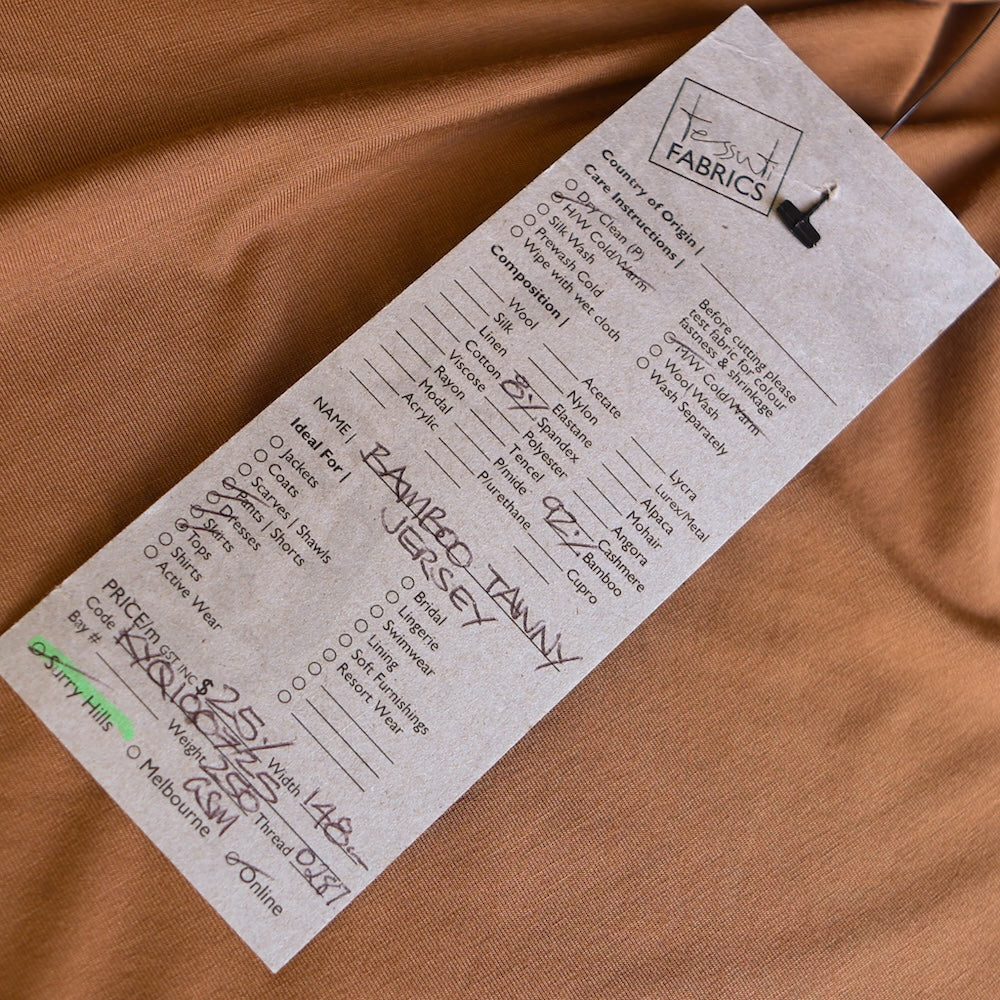 tessuti
FABRICS
Country of Origin |
Care Instructions |
Dry Clean (P)
H/W Cold/Warm
Silk Wash
Prewash Cold
Wipe with wet cloth
Before cutting please
test fabric for colour
fastness & shrinkage
M/W Cold/Warm
Wool Wash
Wash Separately
Composition |
Wool
Silk
Linen
Cotton
Viscose
Rayon
Modal
Acrylic
Acetate
Nylon
8% Elastane
Spandex
Polyester
Tencel
P/mide
P/urethane
Lycra
Lurex/Metal
Alpaca
Mohair
Angora
Cashmere
92% Bamboo
Cupro
NAME | BAMBOO TAWNY
JERSEY
Ideal For |
Jackets
Coats
Scarves | Shawls
Pants | Shorts
Dresses
Skirts
Tops
Shirts
Active Wear
Bridal
Lingerie
Swimwear
Lining
Soft Furnishings
Resort Wear
PRICE/m GST INC $25/ Width 148
Code Weight 250 GSM Thread 0287
Bay #
Surry Hills Melbourne Online